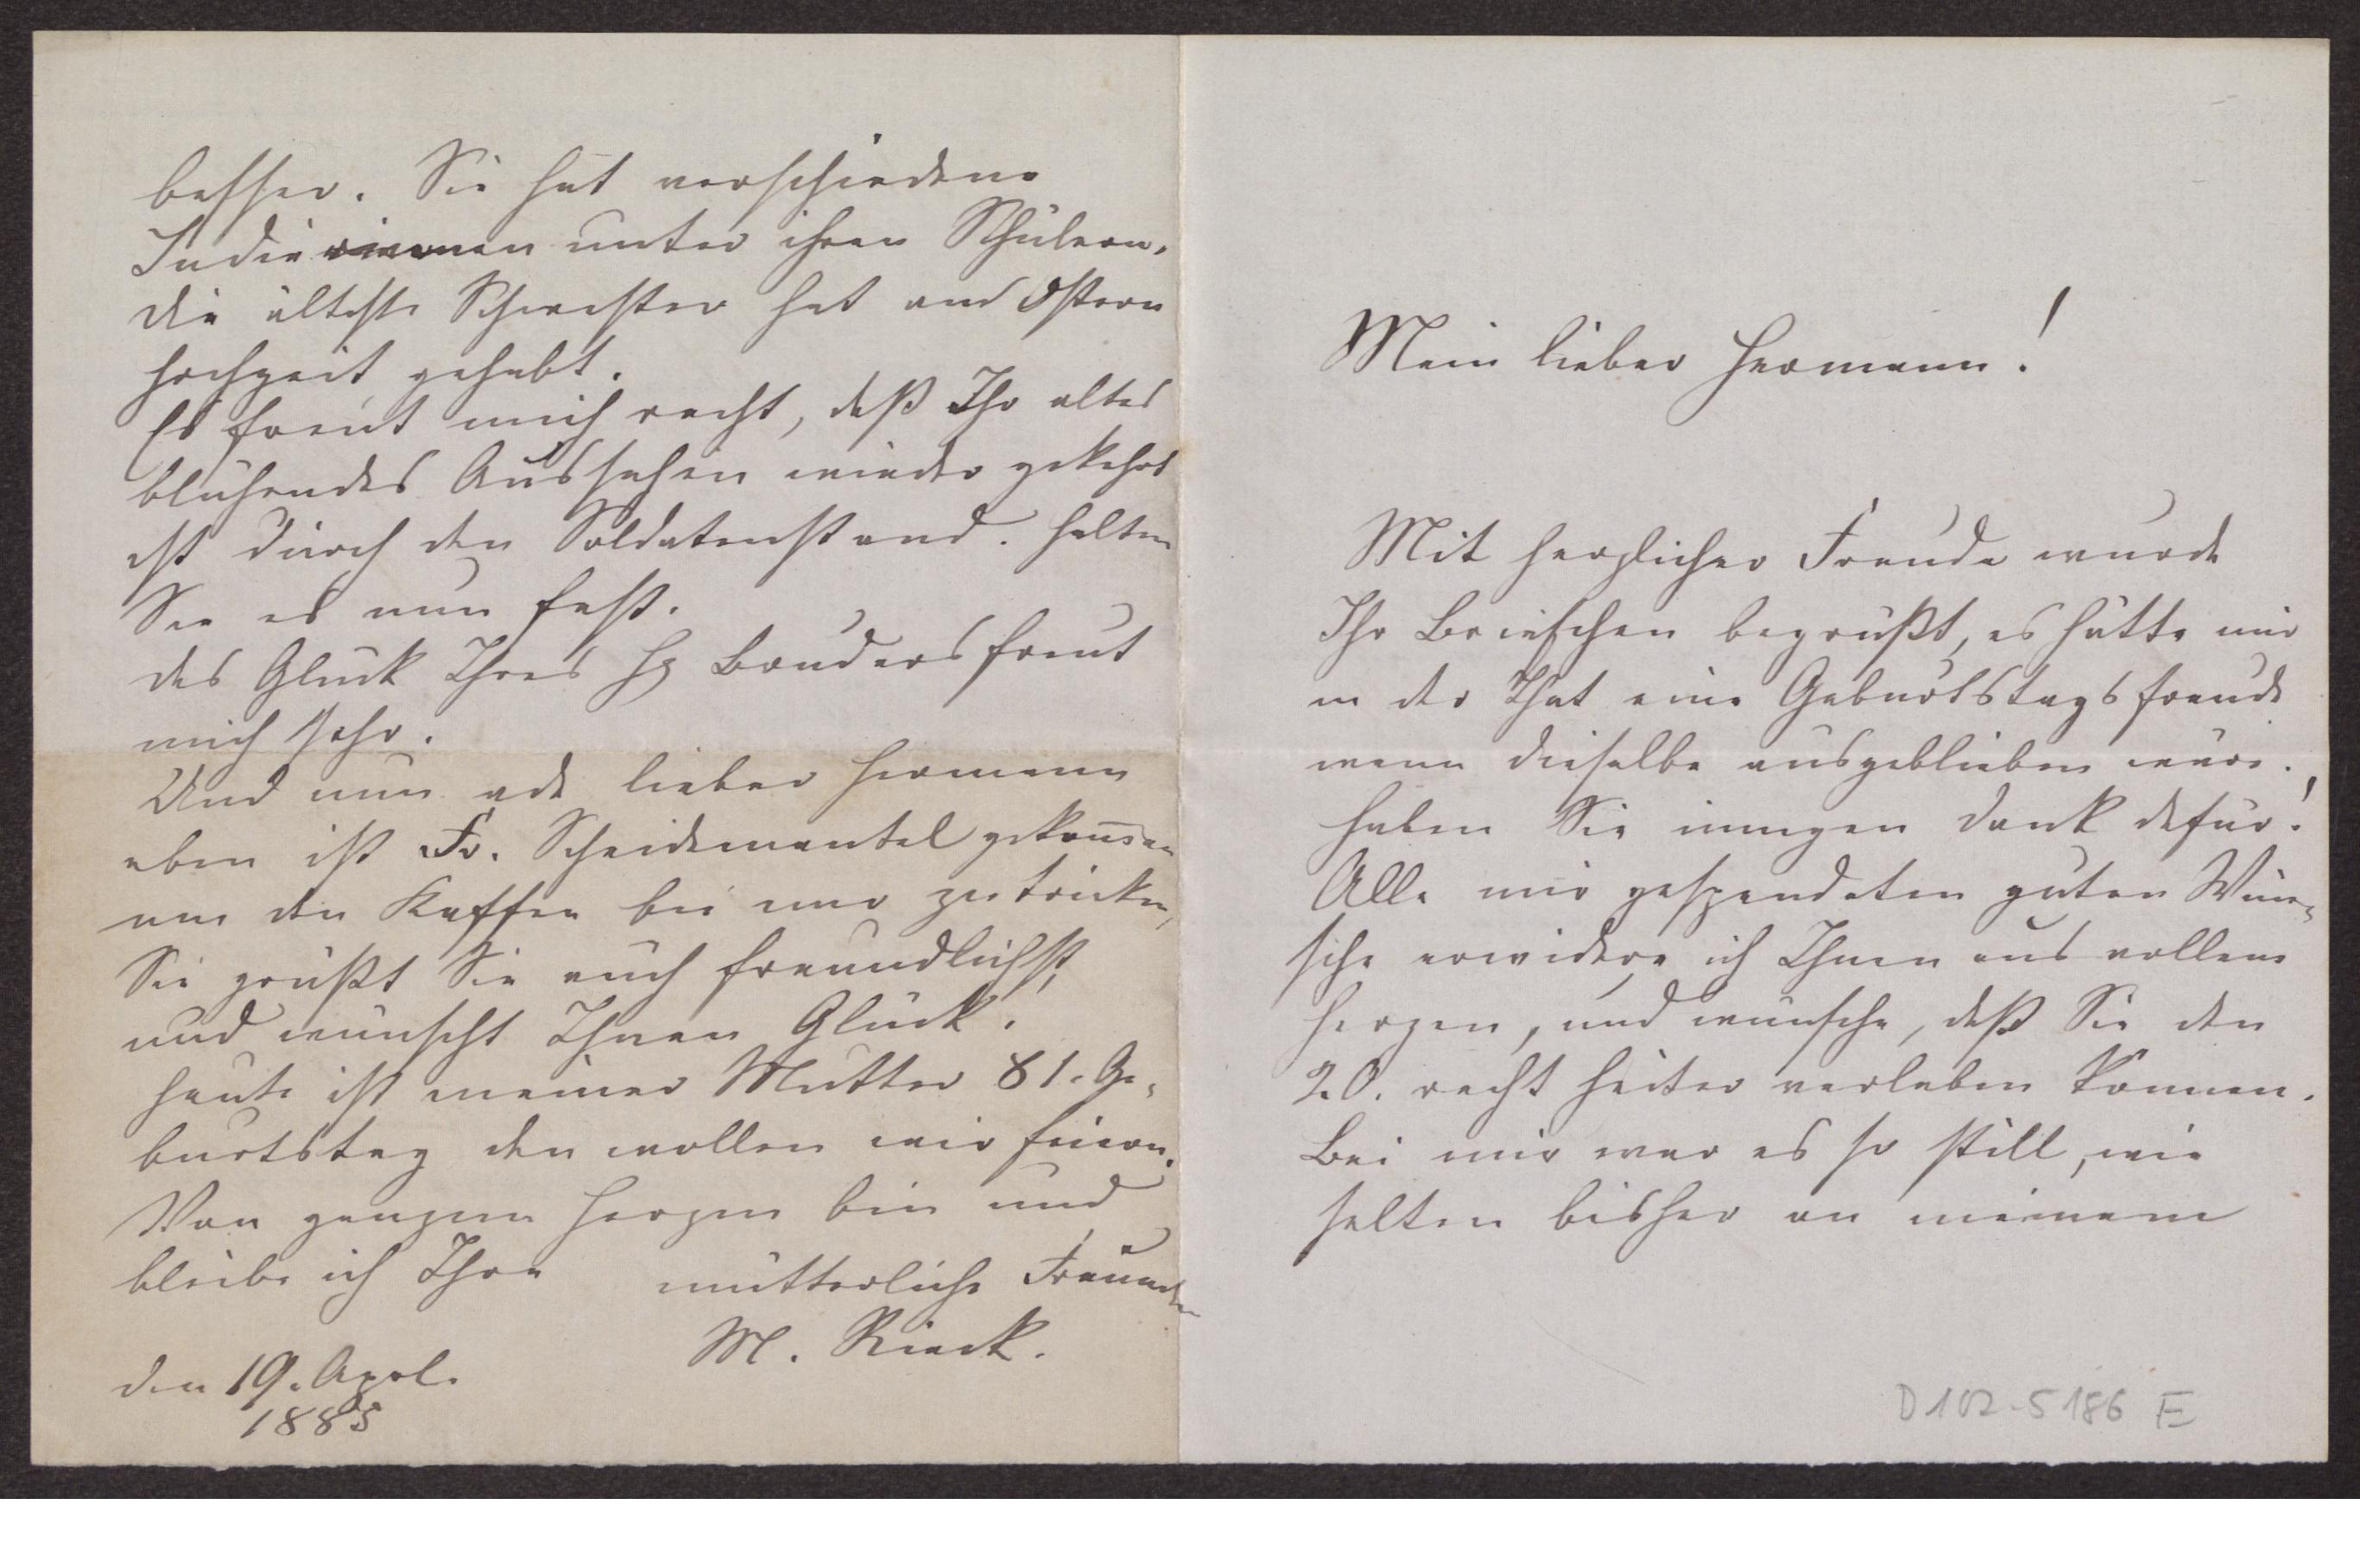 besser. Sie hat verschiedene
Indierinnen unter ihren Schülern.
die älteste Schwester hat and Ostern
Hochzeit gehabt.
Es freut mich recht, daß Ihr altes
blühendes Aussehen wieder gekehrt
ist durch den Soldatenstand. Halten
Sie es nun fest.
das Glück Ihres H Bruders freut
mich sehr.
Und nun ade lieber Hermann
eben ist Fr. Scheidemantel gekom̅en
um den Kaffee bei mir zu trinken,
Sie grüßt Sie auch freundlichst,
und wünscht Ihnen Glück.
Heute ist meiner Mutter 81. Ge-
burtstag den wollen wir feiern.
Von ganzem Herzen bin und
bleibe ich Ihre mütterliche Freundin
M. Rieck.
den 19. Aprl.
1885
Mein lieber Hermann!
Mit herzlicher Freude wurde
Ihr Briefchen begrüßt, es hätte mir
in der That eine Geburtstagsfreude
wenn dieselbe ausgeblieben wäre.
Haben Sie innigen Dank dafür!
Alle mir gespendeten guten Wün-
sche erwidere ich Ihnen aus vollem
Herzen, und wünsche, daß Sie den
20. recht heiter verleben können.
Bei mir war es so still, wie
selten bisher an meinem
D102-5186 E